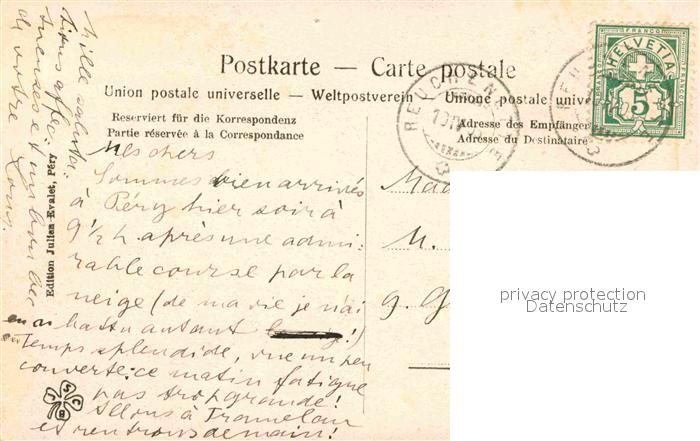 Postkarte — Carte postale
Union postale universelle — Weltpostverein — Unione postale univer
Reserviert für die Korrespondenz
Partie réservée à la Correspondance
Adresse des Empfänger
Adresse du Destinataire
FRANCO
HELVETIA
5
REUCHENETTE
Mes chers
Sommes bien arrivés
à Péry hier soir à
9 1/2 h après une admi-
rable course par la
neige (de ma vie je n'ai
en ai battu autant !)
Temps splendide, vue un peu
couverte ce matin fatigue
pas trop grande!
Allons à Tramelan
et rentrons demain!
Mad
M.
g. G
privacy protection
Datenschutz
Edition Julian Evalet, Péry
Mille saluta-
tions affec-
tueuses et un bon bec
de votre
Louis